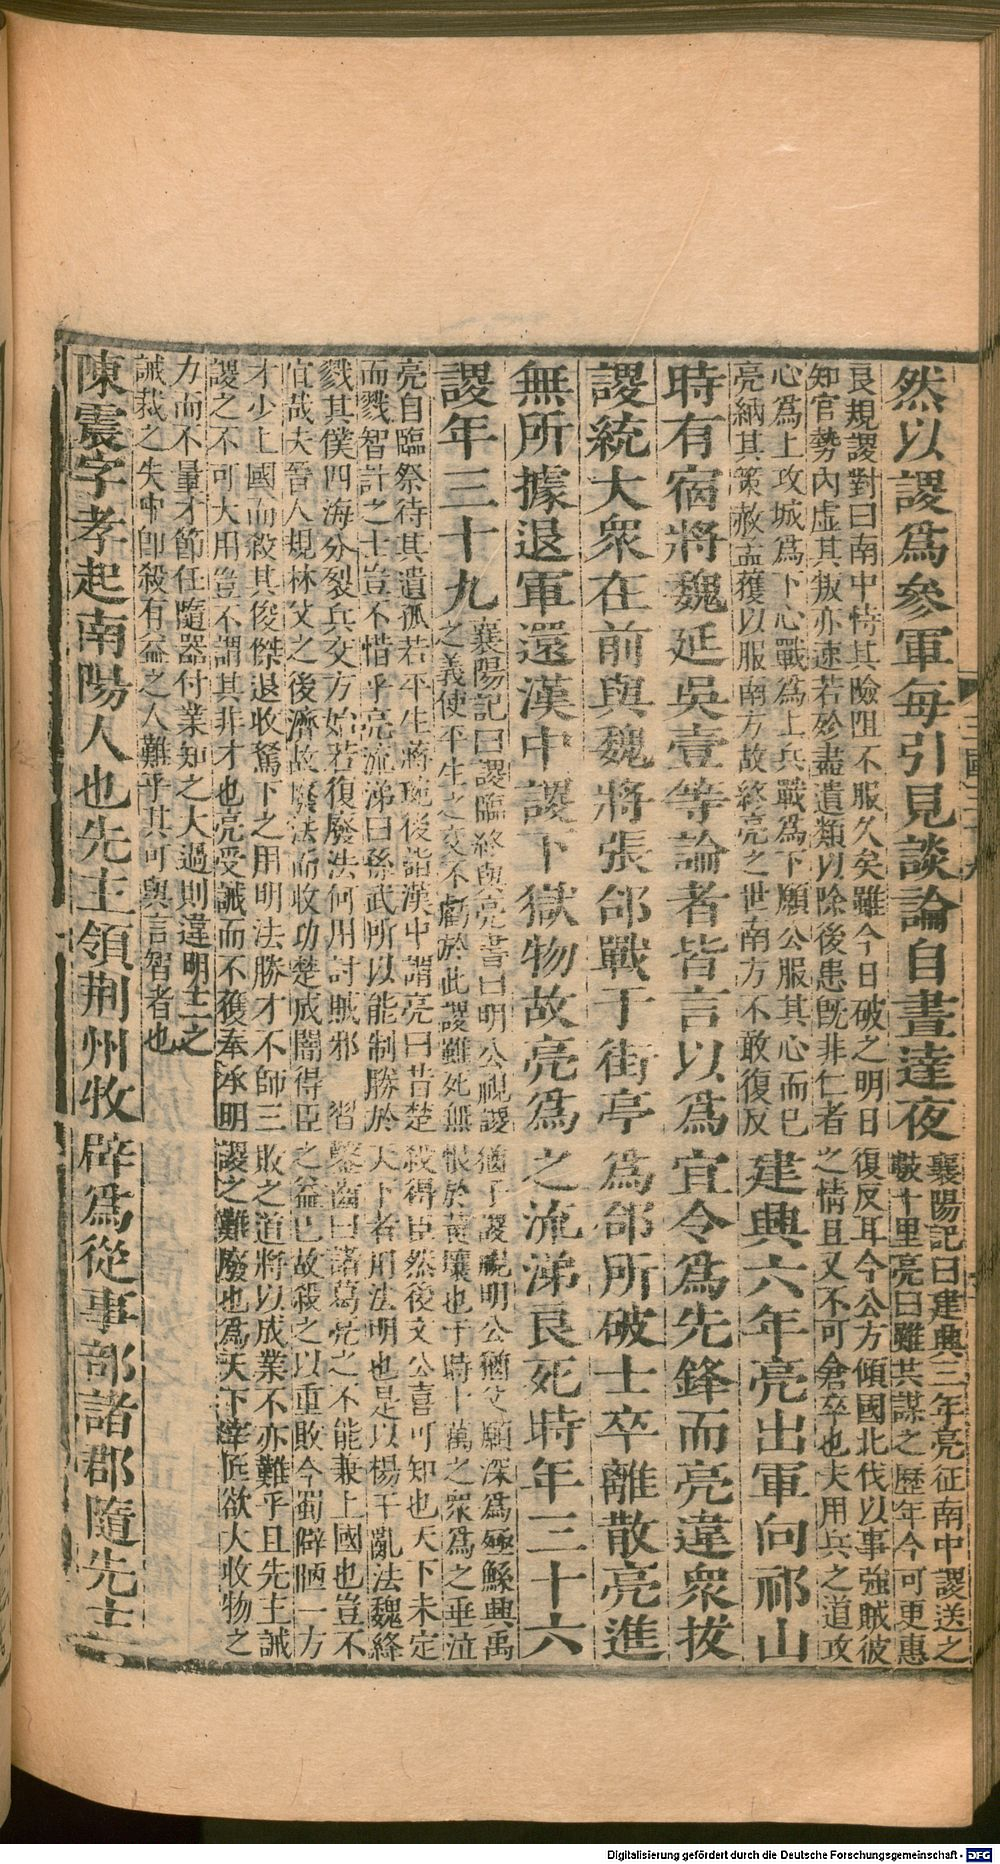 然以謖爲參軍每引見談論自晝達夜
襄陽記曰建興三年亮征南中謖送之
數十里亮曰雖共謀之歷年今可更惠
良規謖對曰南中恃其險阻不服久矣雖今日破之明日復反耳今公方傾國北伐以事強賊彼
知官勢內虛其叛亦速若殄盡遺類以除後患既非仁者之情且又不可倉卒也夫用兵之道攻
心爲上攻城爲下心戰爲上兵戰爲下願公服其心而已
亮納其策赦孟獲以服南方故終亮之世南方不敢復反
建興六年亮出軍向祁山
時有宿將魏延吳壹等論者皆言以爲宜令爲先鋒而亮違衆拔
謖統大衆在前與魏將張郃戰于街亭爲郃所破士卒離散亮進
無所據退軍還漢中謖下獄物故亮爲之流涕良死時年三十六
謖年三十九
襄陽記曰謖臨終與亮書曰明公視謖猶子謖視明公猶父願深爲殛鯀興禹
之義使平生之交不虧於此謖雖死無恨於黃壤也于時十萬之衆爲之垂泣
亮自臨祭待其遺孤若平生蔣琬後詣漢中謂亮曰昔楚殺得臣然後文公喜可知也天下未定
而戮智計之士豈不惜乎亮流涕曰孫武所以能制勝於天下者用法明也是以楊干亂法魏絳
戮其僕四海分裂兵交方始若復廢法何用討賊邪　習鑿齒曰諸葛亮之不能兼上國也豈不
宜哉夫晉人規林父之後濟故廢法而收功楚成闇得臣之益己故殺之以重敗今蜀僻陋一方
才少上國而殺其俊傑退收駑下之用明法勝才不師三敗之道將以成業不亦難乎且先主誡
謖之不可大用豈不謂其非才也亮受誡而不獲奉承明謖之難廢也爲天下宰匠欲大收物之
力而不量才節任隨器付業知之大過則違明主之
誡裁之失中卽殺有益之人難乎其可與言智者也
陳震字孝起南陽人也先主領荊州牧辟爲從事部諸郡隨先主
Digitalisierung gefördert durch die Deutsche Forschungsgemeinschaft - DFG